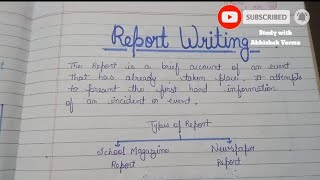 SUBSCRIBED
Study with
Abhishek Verma
Report Writing
The Report is a brief account of an event
that has already taken place, it attempts
to present the first hand information
of an incident or event.
Types of Report
School Magazine
Report
Newspaper
Report